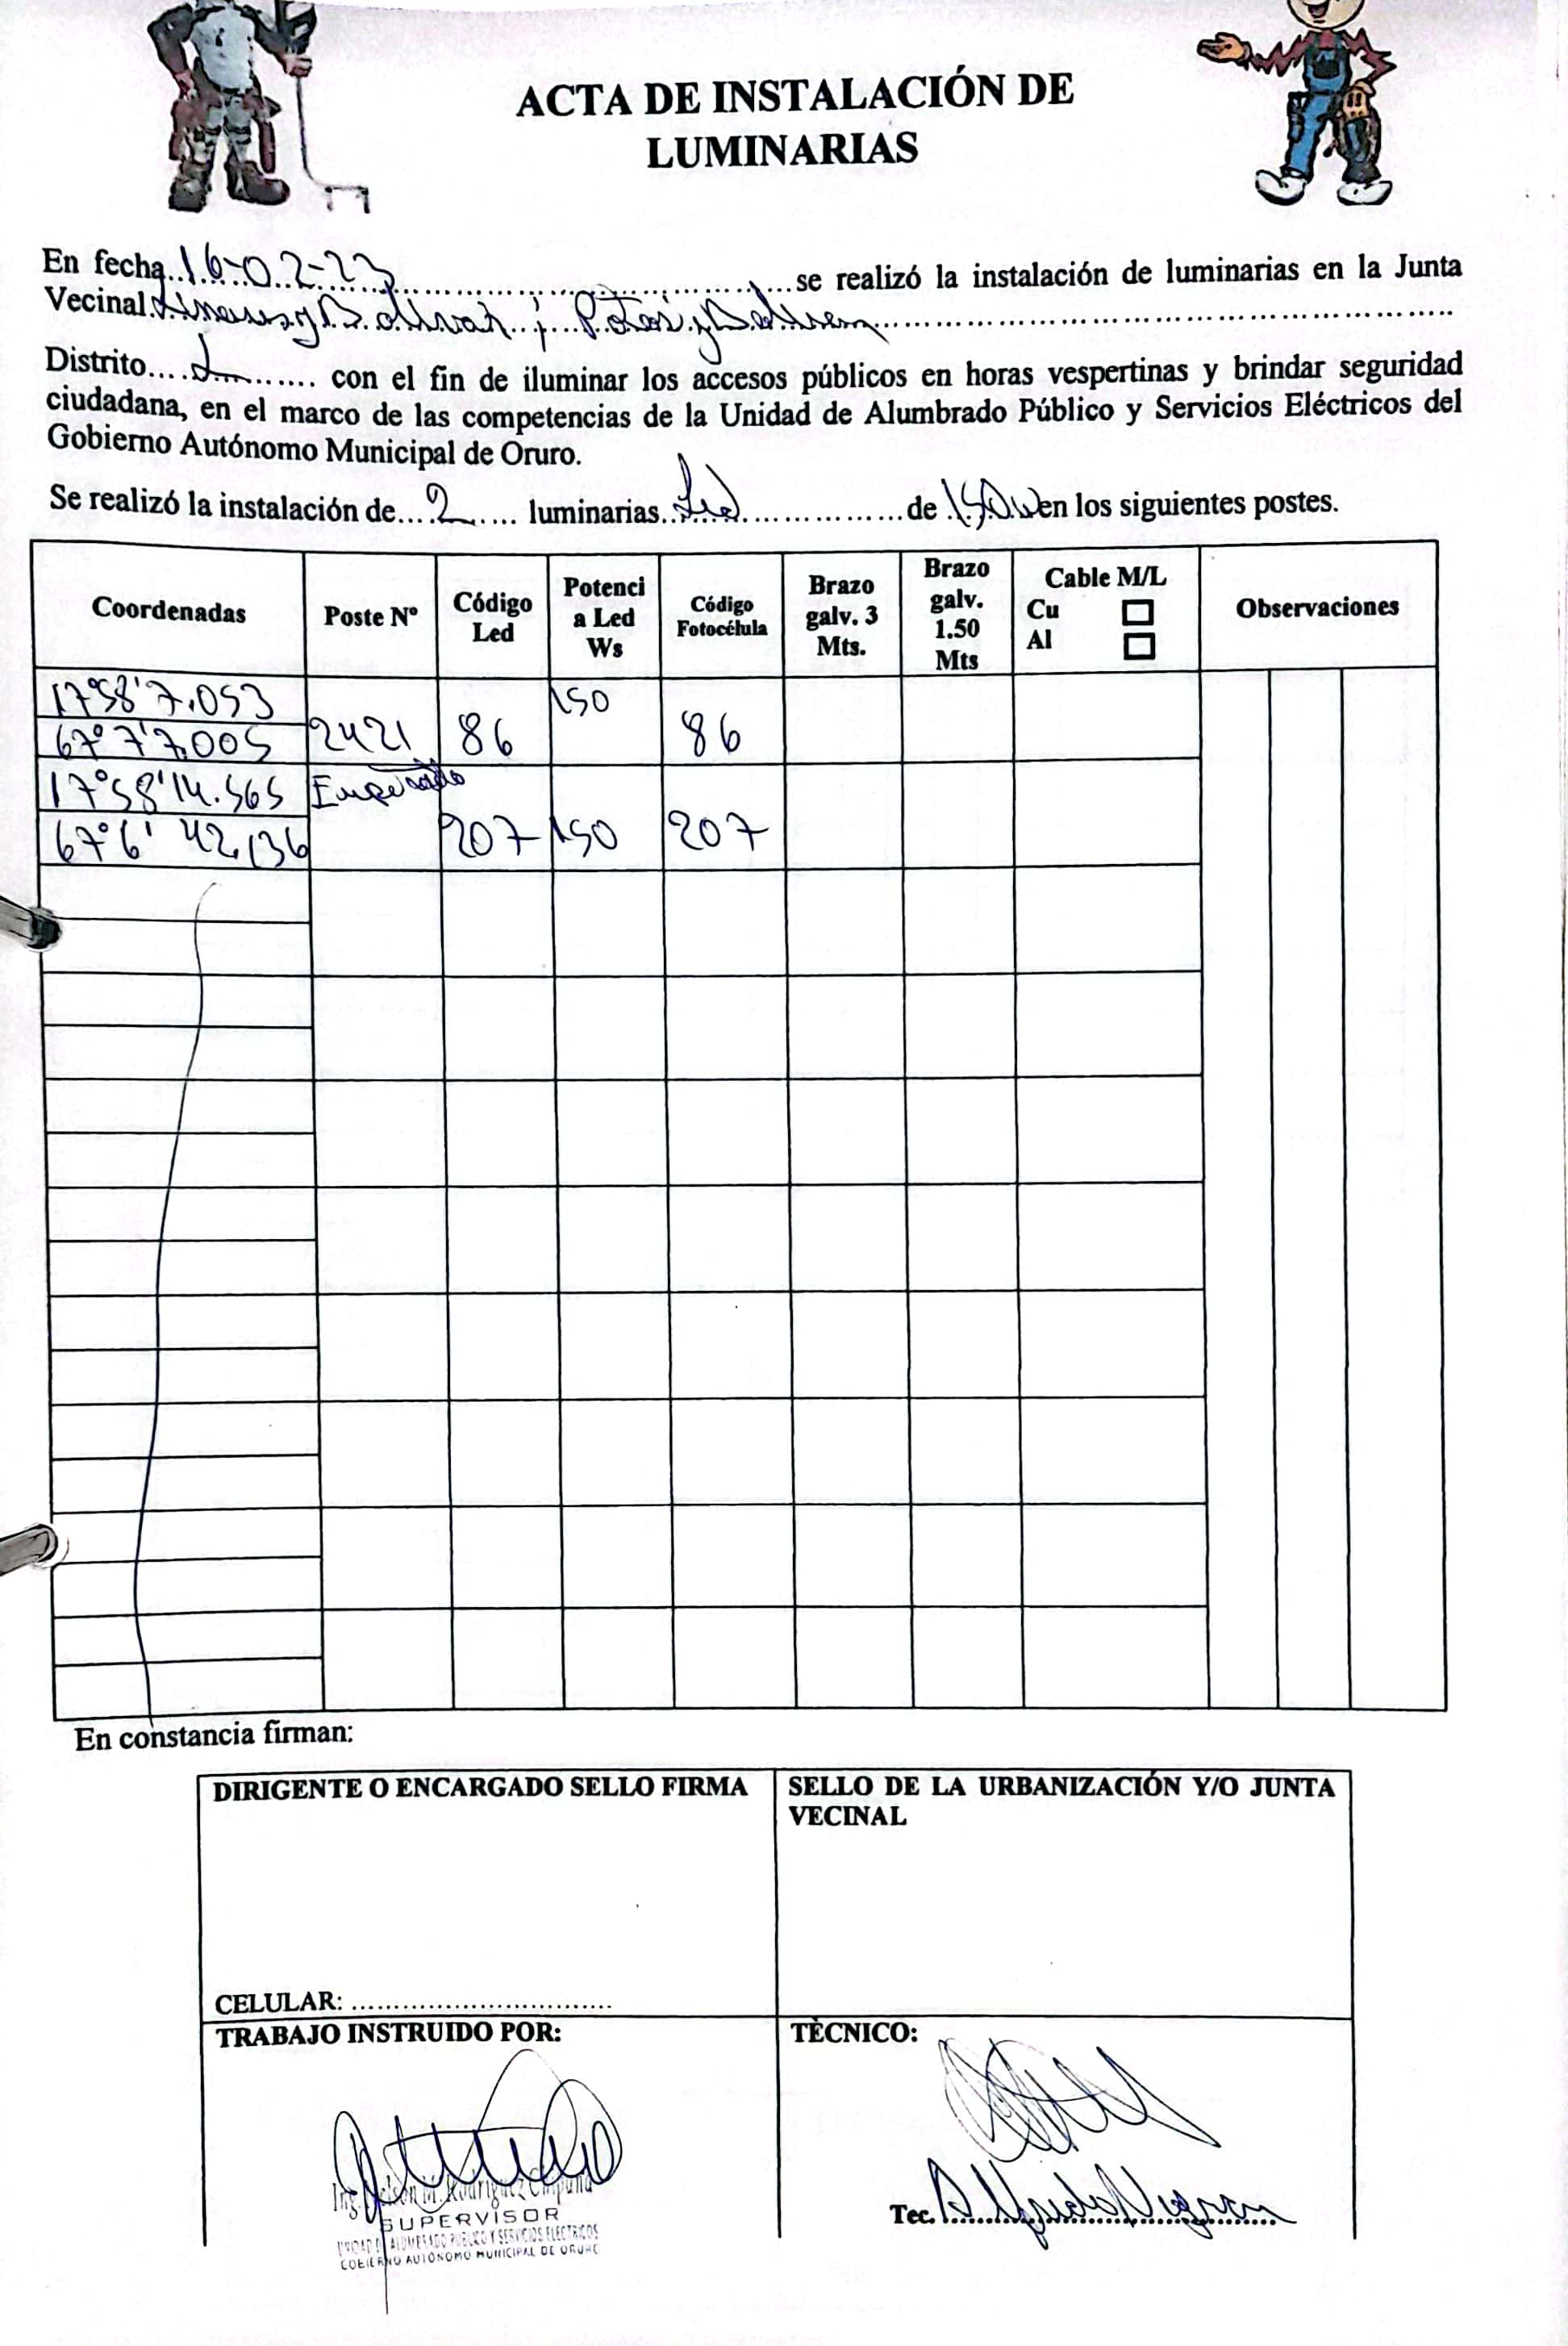 ACTA DE INSTALACIÓN DE
LUMINARIAS
En fecha 16-02-23 se realizó la instalación de luminarias en la Junta
Vecinal y Bolivar ; Potosi y
Distrito con el fin de iluminar los accesos públicos en horas vespertinas y brindar seguridad
ciudadana, en el marco de las competencias de la Unidad de Alumbrado Público y Servicios Eléctricos del
Gobierno Autónomo Municipal de Oruro.
Se realizó la instalación de 2 luminarias Led de 150w en los siguientes postes.
Coordenadas Poste Nº Código Led Potencia Led Ws Código Fotocélula Brazo galv. 3 Mts. Brazo galv. 1.50 Mts Cable M/L Cu Al Observaciones
17°58'7.053 150
67°7'7.005 2421 86 86
17°58'14.565
67°6'42,136 207 150 207
En constancia firman:
DIRIGENTE O ENCARGADO SELLO FIRMA
SELLO DE LA URBANIZACIÓN Y/O JUNTA
VECINAL
CELULAR:
TRABAJO INSTRUIDO POR:
TÉCNICO:
Ing. Nelson M. Rodriguez
SUPERVISOR
UNIDAD DE ALUMBRADO PUBLICO Y SERVICIOS ELECTRICOS
GOBIERNO AUTONOMO MUNICIPAL DE ORURO
Tec. Alfredo